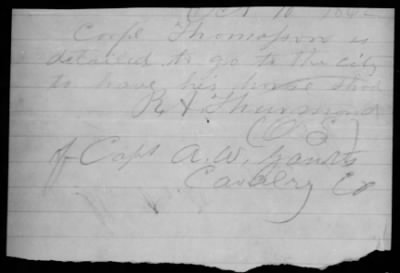 Oct 10 186
Corpl Thompson is
detailed to go to the city
to have his horse shod
R Thurmond
(O.S.)
of Capt A. W. Gantts
Cavalry Co